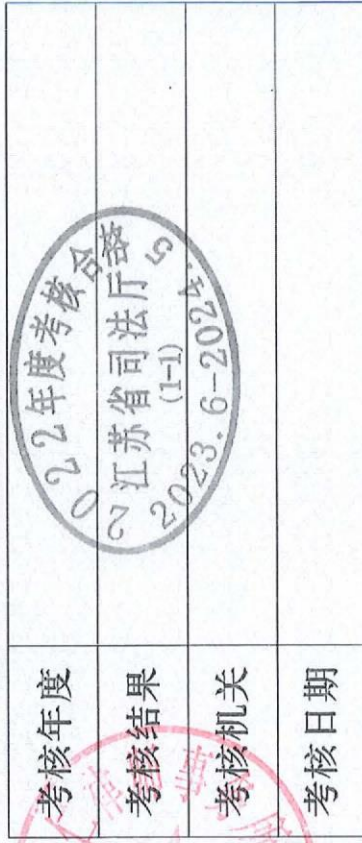 考核年度
考核结果
考核机关
考核日期
2022年度考核合格
江苏省司法厅
(1-1)
2023. 6-2024. 5